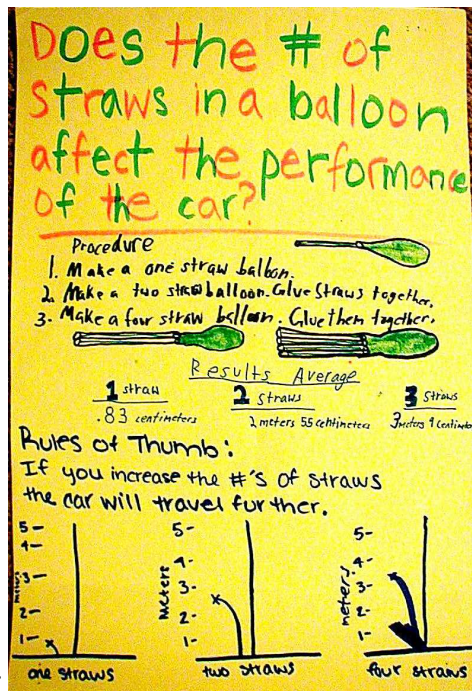 Does the # of
straws in a balloon
affect the performance
of the car?
Procedure
1. Make a one straw balloon.
2. Make a two straw balloon. Glue straws together.
3. Make a four straw balloon. Glue them together.
Results Average
1 straw
2 straws
3 straws
.83 centimeters
2 meters 55 centimeters
3 meters 9
Rules of Thumb:
If you increase the #'s of straws
the car will travel further.
5-
4-
3-
2-
1-
meters
one straws
5-
4-
3-
2-
1-
Meters
two straws
5-
4-
3-
2-
1-
meters
four straws